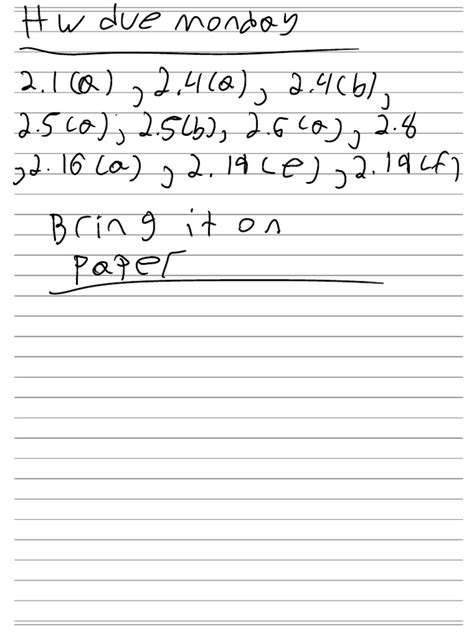 HW due monday
2.1(a), 2.4(a), 2.4(b),
2.5(a), 2.5(b), 2.6(a), 2.8
,2.16(a), 2.19(e), 2.19(f)
Bring it on
paper